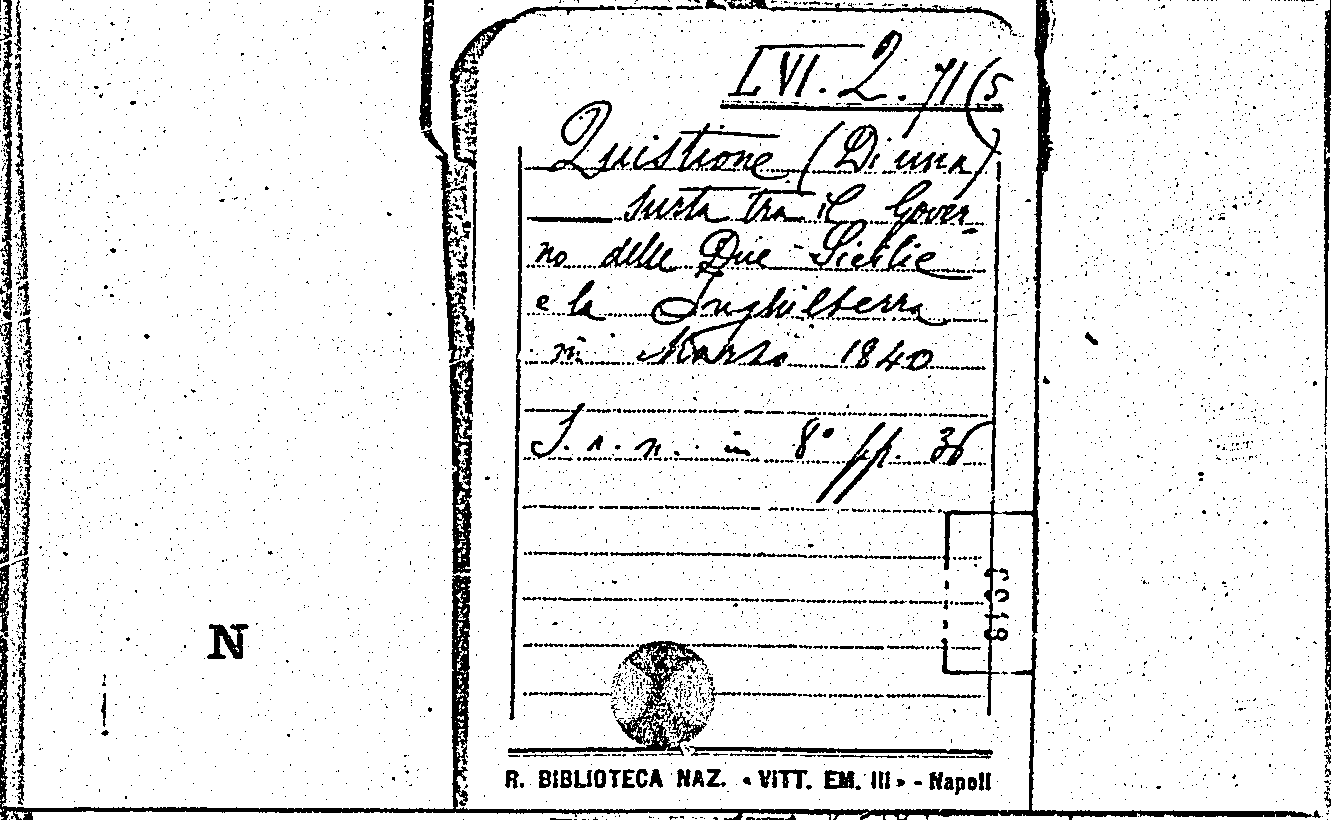 LVI. 2. 71(5
Quistione (Di una)
surta tra il Gover-
no delle Due Sicilie
e la Inghilterra
in Marzo 1840
S. n. n. in 8° pp. 36
N
R. BIBLIOTECA NAZ. « VITT. EM. III » - Napoli